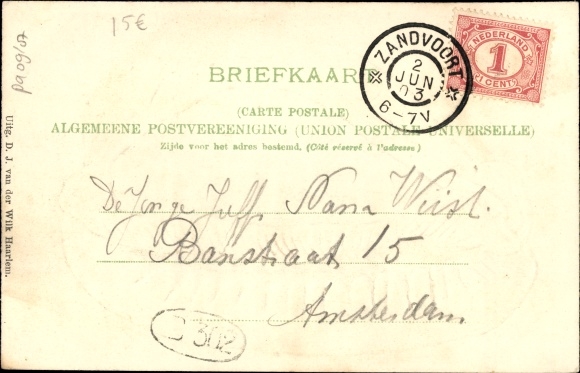 15€
p909/07
NEDERLAND
1
1 CENT
ZANDVOORT
2
JUN
03
6-7V
BRIEFKAAR
(CARTE POSTALE)
ALGEMEENE POSTVEREENIGING (UNION POSTALE UNIVERSELLE)
Zijde voor het adres bestemd. (Côté réservé à l'adresse)
De Jonge Juff. Nana Wüst.
Banstraat 15
Amsterdam.
302
Uitg. D. J. van der Wilk Haarlem.